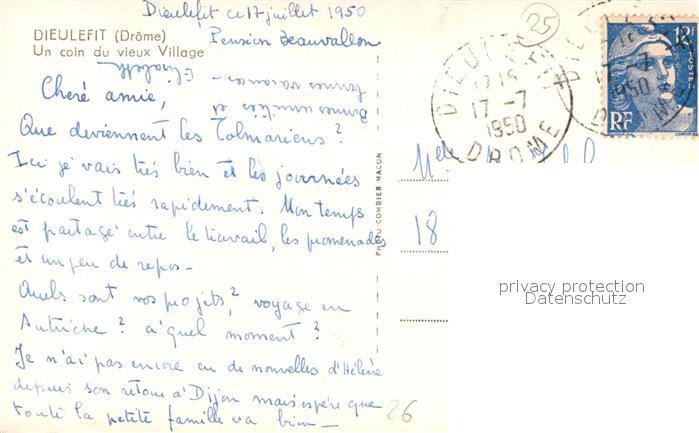 Dieulefit ce 17 juillet 1950
DIEULEFIT (Drôme)
Un coin du vieux Village
Pension Beauvallon
25
Bonnes amitiés et
bonnes vacances -
Elisabeth
Cheré amie,
Que deviennent les Colmariens ?
Ici je vais très bien et les journées
s'écoulent très rapidement. Mon temps
est partagé entre le travail, les promenades
et un peu de repos -
Quels sont vos projets ? voyage en
Autriche ? à quel moment ?
Je n'ai pas encore eu de nouvelles d'Hélène
depuis son retour à Dijon mais espère que
toute la petite famille va bien -
26
PHOTO COMBIER MACON
DIEULEFIT
17-7
1950
DROME
17-7
1950
12F
POSTES
RF
Melle
18
privacy protection
Datenschutz